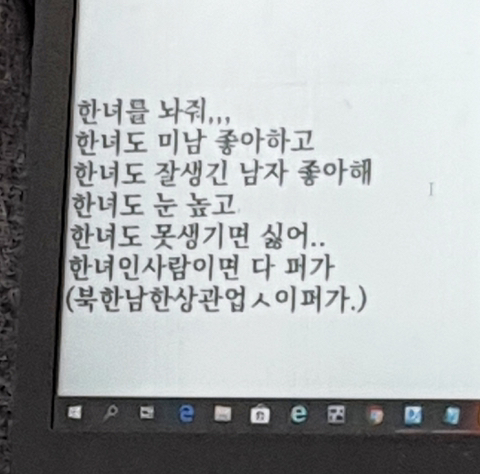 한녀를 놔줘,,,
한녀도 미남 좋아하고
한녀도 잘생긴 남자 좋아해
한녀도 눈 높고
한녀도 못생기면 싫어..
한녀인사람이면 다 퍼가
(북한남한상관업ㅅ이퍼가.)